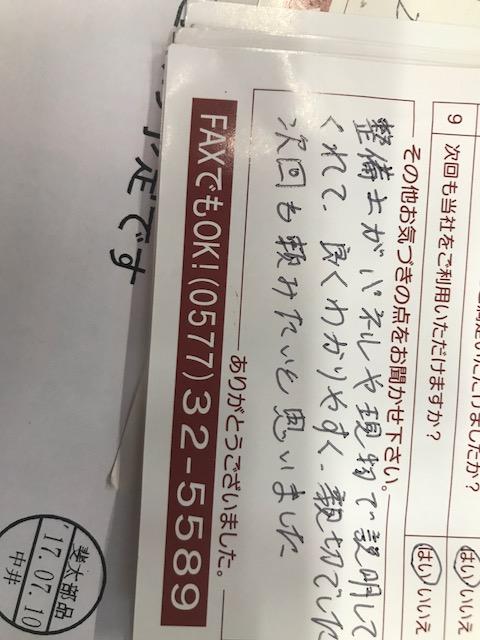 たか？ はい いいえ
9 次回も当社をご利用いただけますか？ はい いいえ
その他お気づきの点をお聞かせ下さい。
整備士がパネルや現物で説明して
くれて、良くわかりやすく、親切でした
次回も頼みたいと思いました
ありがとうございました。
FAXでもOK!(0577)32-5589
定です
部品
'17.07.10
中井